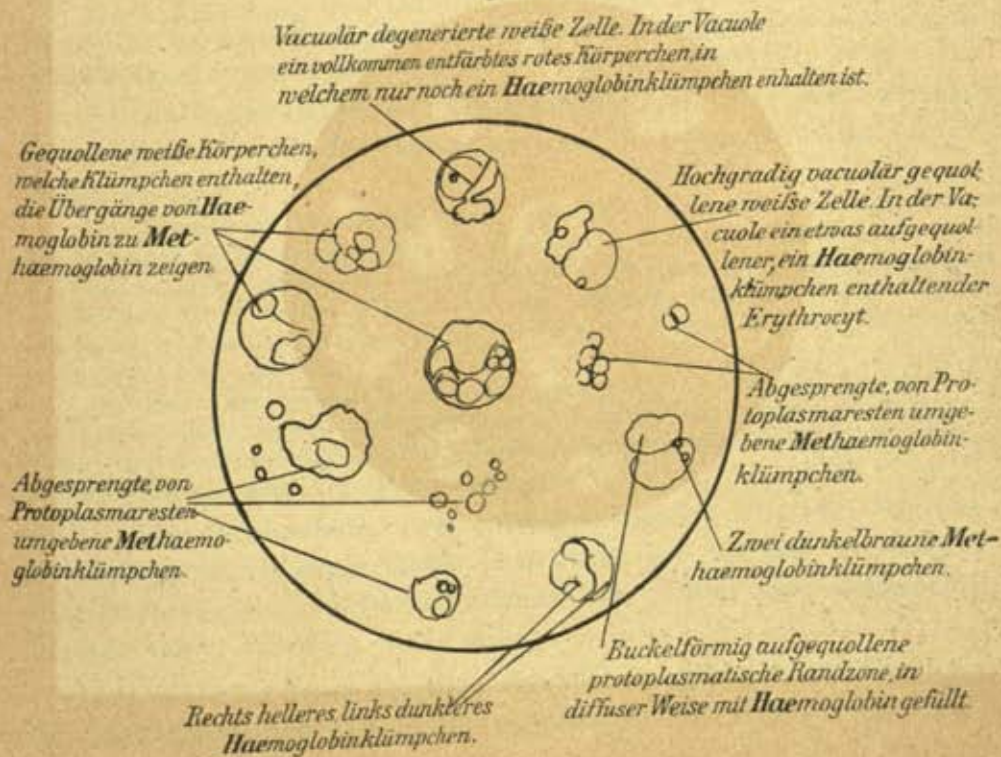 Vacuolär degenerierte weiße Zelle. In der Vacuole
ein vollkommen entfärbtes rotes Körperchen, in
welchem nur noch ein Haemoglobinklümpchen enhalten ist.
Gequollene weiße Körperchen,
welche Klümpchen enthalten,
die Übergänge von Hae-
moglobin zu Met-
haemoglobin zeigen.
Hochgradig vacuolär gequol-
lene weiße Zelle. In der Va-
cuole ein etwas aufgequol-
lener, ein Haemoglobin-
klümpchen enthaltender
Erythrocyt.
Abgesprengte, von Pro-
toplasmaresten umge-
bene Methaemoglobin-
klümpchen.
Abgesprengte, von
Protoplasmaresten
umgebene Methaemo-
globinklümpchen.
Zwei dunkelbraune Met-
haemoglobinklümpchen.
Buckelförmig aufgequollene
protoplasmatische Randzone, in
diffuser Weise mit Haemoglobin gefüllt.
Rechts helleres, links dunkleres
Haemoglobinklümpchen.